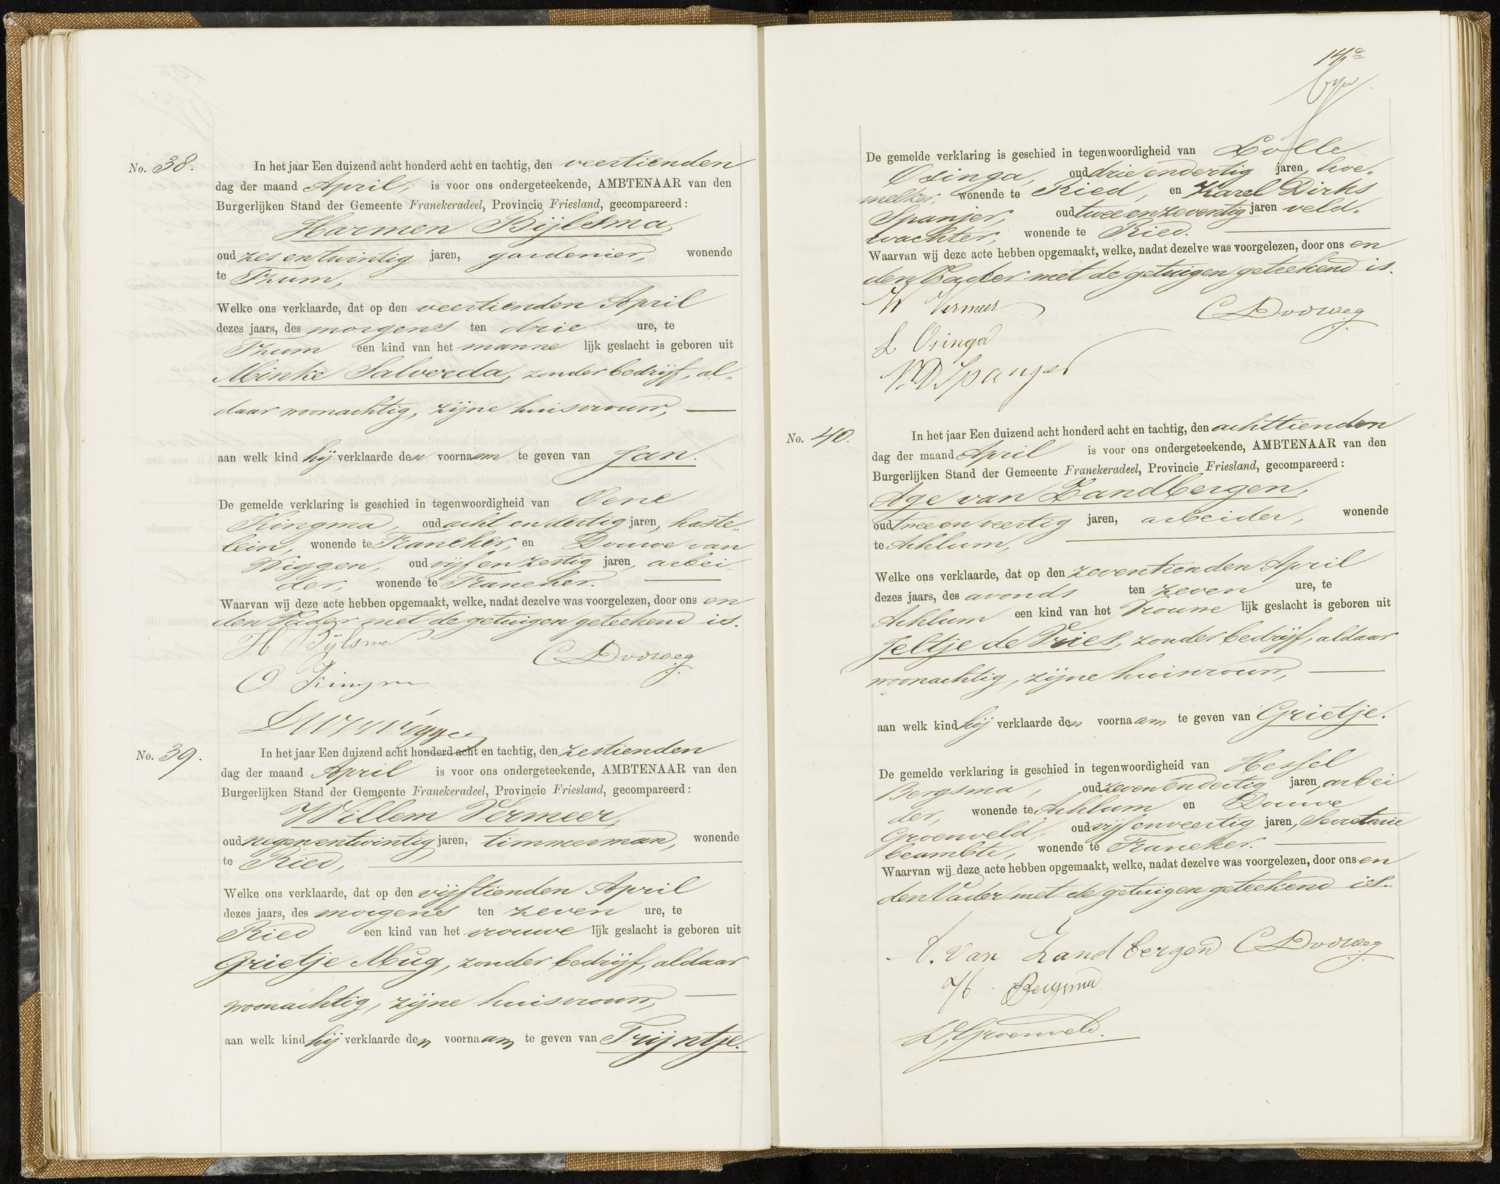 No. 38.
In het jaar Een duizend acht honderd acht en tachtig, den veertienden
dag der maand April, is voor ons ondergeteekende, AMBTENAAR van den
Burgerlijken Stand der Gemeente Franekeradeel, Provincie Friesland, gecompareerd:
Harmen Bijlsma,
oud zes en twintig jaren, gardenier, wonende
te Tzum,
Welke ons verklaarde, dat op den veertienden April
dezes jaars, des morgens ten drie ure, te
Tzum een kind van het manne lijk geslacht is geboren uit
Minke Salverda, zonder bedrijf, al-
daar woonachtig, zijne huisvrouw,
aan welk kind hij verklaarde den voornaam te geven van Jan.
De gemelde verklaring is geschied in tegenwoordigheid van Oene
Kingma, oud acht en dertig jaren, kaste-
lein, wonende te Franeker, en Douwe van
Wiggen, oud vijf en zestig jaren, arbei-
der, wonende te Franeker.
Waarvan wij deze acte hebben opgemaakt, welke, nadat dezelve was voorgelezen, door ons en
den Vader met de getuigen geteekend is.
H Bijlsma
C Dooweg
O Kingma
No. 39.
In het jaar Een duizend acht honderd acht en tachtig, den zestienden
dag der maand April is voor ons ondergeteekende, AMBTENAAR van den
Burgerlijken Stand der Gemeente Franekeradeel, Provincie Friesland, gecompareerd:
Willem Vermeer,
oud negen en twintig jaren, timmerman, wonende
te Ried,
Welke ons verklaarde, dat op den vijftienden April
dezes jaars, des morgens ten zeven ure, te
Ried een kind van het vrouwe lijk geslacht is geboren uit
Grietje Mug, zonder bedrijf, aldaar
woonachtig, zijne huisvrouw,
aan welk kind hij verklaarde den voornaam te geven van Trijntje.
14e
De gemelde verklaring is geschied in tegenwoordigheid van Lolle
Osinga, oud drie en dertig jaren, koe-
melker, wonende te Ried, en Karel Dirks
Spanjer, oud twee en zeventig jaren veld-
wachter, wonende te Ried.
Waarvan wij deze acte hebben opgemaakt, welke, nadat dezelve was voorgelezen, door ons en
den Vader met de getuigen geteekend is.
W Vermeer
C Dooweg
L Osinga
K D Spanjer
No. 40.
In het jaar Een duizend acht honderd acht en tachtig, den achttienden
dag der maand April is voor ons ondergeteekende, AMBTENAAR van den
Burgerlijken Stand der Gemeente Franekeradeel, Provincie Friesland, gecompareerd:
Age van Zandbergen,
oud twee en veertig jaren, arbeider, wonende
te Achlum,
Welke ons verklaarde, dat op den zeventienden April
dezes jaars, des avonds ten zeven ure, te
Achlum een kind van het vrouwe lijk geslacht is geboren uit
Jeltje de Vries, zonder bedrijf, aldaar
woonachtig, zijne huisvrouw,
aan welk kind hij verklaarde den voornaam te geven van Grietje.
De gemelde verklaring is geschied in tegenwoordigheid van Hessel
Bergsma, oud zeven en dertig jaren, arbei
der, wonende te Achlum en Douwe
Groenveld, oud vijf en veertig jaren, Secretarie
beambte, wonende te Franeker.
Waarvan wij deze acte hebben opgemaakt, welke, nadat dezelve was voorgelezen, door ons en
den Vader met de getuigen geteekend is.
A. Van Zandbergen C Dooweg
H. Bergsma
D. Groenveld.